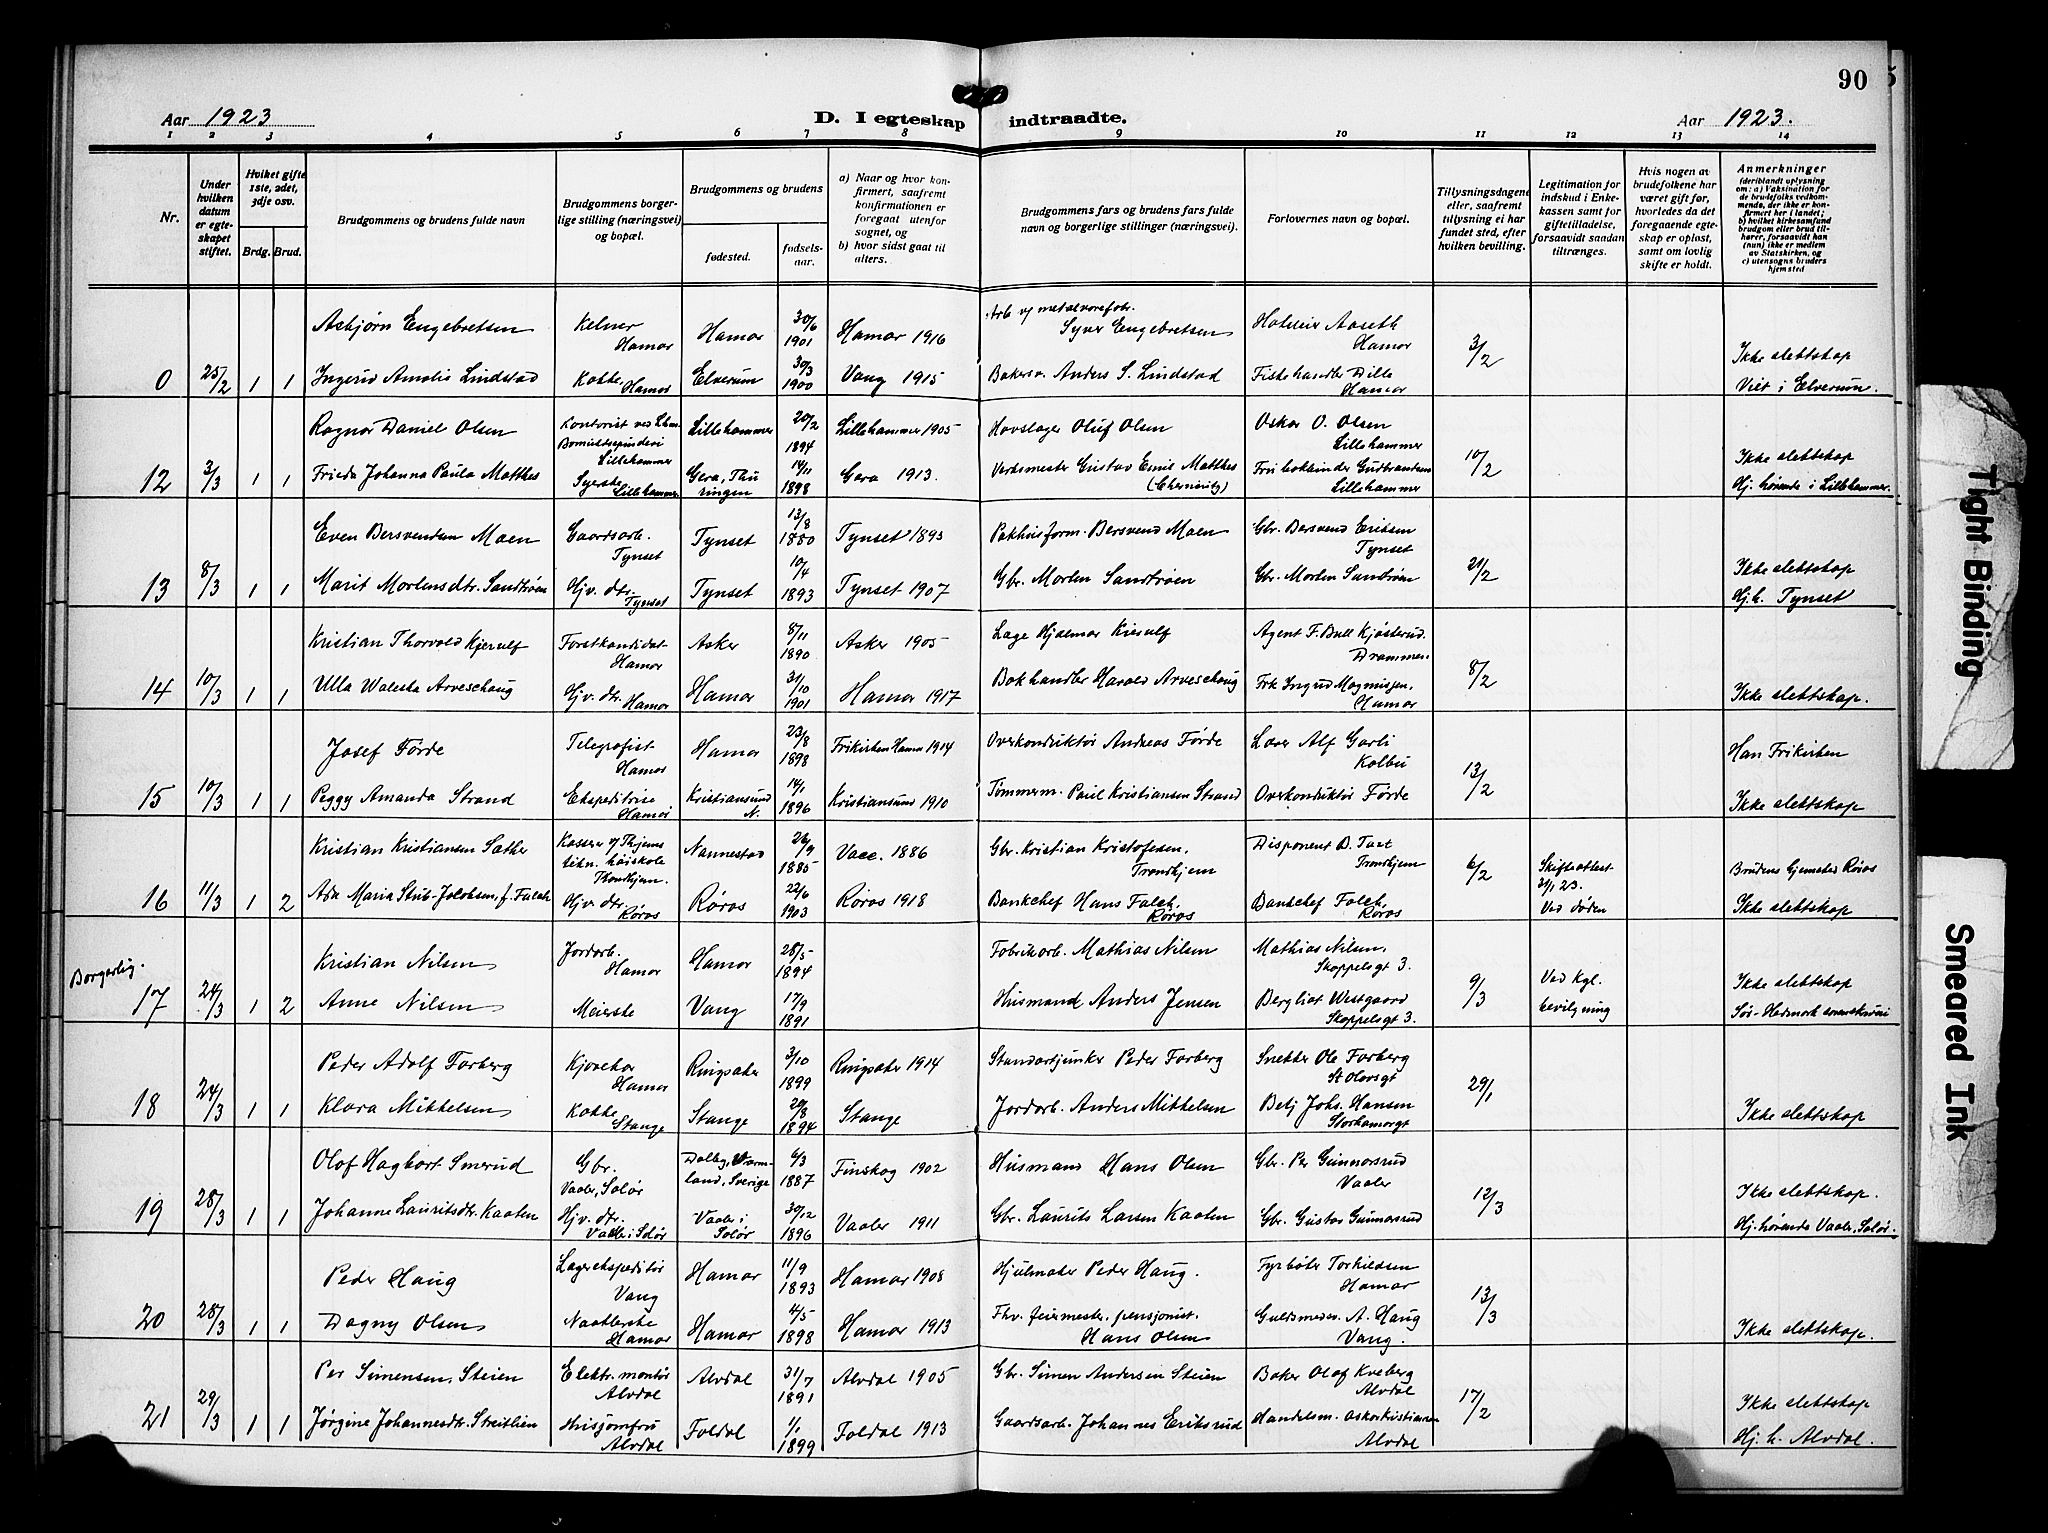 90
Aar 1923
D. I egteskap indtraadte.
Aar 1923.
1 2 3 4 5 6 7 8 9 10 11 12 13 14
Nr.
Under hvilken datum er egteskapet stiftet.
Hvilket gifte 1ste, 2det, 3dje osv.
Brdg. Brud.
Brudgommens og brudens fulde navn
Brudgommens borgerlige stilling (næringsvei) og bopæl.
Brudgommens og brudens
fødested.
fødselsaar.
a) Naar og hvor konfirmert, saafremt konfirmationen er foregaat utenfor sognet, og
b) hvor sidst gaat til alters.
Brudgommens fars og brudens fars fulde navn og borgerlige stillinger (næringsvei).
Forlovernes navn og bopæl.
Tillysningsdagene eller, saafremt tillysning ei har fundet sted, efter hvilken bevilling.
Legitimation for indskud i Enkekassen samt for giftetilladelse, forsaavidt saadan tiltrænges.
Hvis nogen av brudefolkene har været gift før, hvorledes da det foregaaende egteskap er opløst, samt om lovlig skifte er holdt.
Anmerkninger (deriblandt oplysning om: a) Vaksination for de brudefolks vedkommende, der ikke er konfirmert her i landet; b) hvilket kirkesamfund brudgom eller brud tilhører, forsaavidt han (hun) ikke er medlem av Statskirken, og c) utensogns bruders hjemsted
Asbjørn Engebretsen Kelner Hamar Hamar 30/6 1901 Hamar 1916 Arb. v/ metalvarefabr. Syver Engebretsen Aaseth Hamar 3/2 Ikke slektskap
0 25/2 1 1 Ingerid Amalie Lindstad Kokke, Hamar Elverum 30/3 1900 Vang 1915 Bakersv. Anders S. Lindstad Fiskehandler Dille Hamar Viet i Elverum.
Ragnar Daniel Olsen Kontorist ved Lhm. Bomuldsspinderi Lillehammer Lillehammer 20/2 1894 Lillehammer 1905 Hovslager Oluf Olsen Oskar O. Olsen Lillehammer 10/2 Ikke slektskap
12 3/3 1 1 Frieda Johanna Paula Matthes Syerske Lillehammer Gera, Thüringen 14/11 1898 Gera 1913. Verksmester Gustav Emil Matthes Gudbrandsen Lillehammer Hj. hørende i Lillehammer.
Even Bersvendsen Moen Gaardsarb. Tynset Tynset 13/8 1880 Tynset 1895 Pakhusform. Bersvend Moen Gbr. Bersvend Eriksen Tynset 21/2 Ikke slektskap
13 8/3 1 1 Marit Mortensdtr. Sandtrøen Hjv. dtr. Tynset Tynset 10/4 1893 Tynset 1907 Gbr. Morten Sandtrøen Gbr. Morten Sandtrøen Hj. h. Tynset
Kristian Thorvald Kjerulf Forstkandidat Hamar Asker 8/11 1890 Asker 1905 Læge Hjalmar Kierulf Agent F. Bull Kjøsterud. Drammen. 8/2
14 10/3 1 1 Ulla Waleska Arveschoug Hjv. dtr. Hamar Hamar 31/10 1901 Hamar 1917 Bokhandler Harald Arveschoug Frk Ingrid Magnussen, Hamar Ikke slektskap.
Josef Førde Telegrafist Hamar Hamar 23/8 1898 Frikirken Hamar 1914 Overkonduktør Andreas Førde Lærer Alf Garli Kolbu 13/2 Han Frikirken
15 10/3 1 1 Peggy Amanda Strand Ekspeditrise Hamar Kristiansund N. 14/1 1896 Kristiansund 1910 Tømmerm. Paul Kristiansen Strand Overkonduktør Førde Ikke slektskap
Kristian Kristiansen Sæther Kasserer v/ Thjems tekn. høiskole Trondhjem. Nannestad 26/9 1885 Vacc. 1886 Gbr. Kristian Kristofersen, Trondhjem Disponent Trondhjem 6/2 Skifteattest 31/1 23. Ved døden Brudens hjemsted Røros
16 11/3 1 2 Ada Maria Stub-Jakobsen, f. Falch Hjv. dtr. Røros Røros 22/6 1903 Røros 1918 Bankchef Hans Falch, Røros Bankchef Falch, Røros Ikke slektskap
Borgerlig. Kristian Nilsen Jordarb. Hamar Hamar 28/5 1894 Fabrikarb. Mathias Nilsen Mathias Nilsen, Skappelsgt 3. 9/3 Ved kgl. bevilgning Ikke slektskap
17 24/3 1 2 Anne Nilsen Meierske Vang 17/9 1891 Husmand Anders Jensen Bergliot Westgaard Skappelsgt 3. Sør-Hedmark sorenskriveri
Peder Adolf Farberg Kjørekar Hamar Ringsaker 3/10 1899 Ringsaker 1914 Standartjunker Peder Farberg Snekker Ole Farberg St Olavsgt 29/1
18 24/3 1 1 Klara Mikkelsen Kokke Stange Stange 20/8 1894 Stange Jordarb. Anders Mikkelsen Betj Johs. Hansen Storhamargt Ikke slektskap
Olof Hagbart Smerud Gbr. Vaaler, Solør Dalby, Värmland, Sverige 6/3 1887 Finskog 1902 Husmand Hans Olsen Gbr. Per Gunnarsrud Vaaler 12/3 Ikke slektskap.
19 28/3 1 1 Johanne Lauritsdtr. Kaaten Hjv. dtr. Vaaler i Solør Vaaler i Solør 30/12 1896 Vaaler 1911 Gbr. Laurits Larsen Kaaten Gbr. Gustav Gunnarsrud Hj. hørende Vaaler, Solør.
Peder Haug Lagerekspeditør Vang Hamar 11/9 1893 Hamar 1908 Hjulmaker Peder Haug. Fyrbøter Torkildsen Hamar 13/3
20 28/3 1 1 Dagny Olsen Naatlerske Hamar Hamar 4/5 1898 Hamar 1913 Fhv. feiermester, pensjonist. Hans Olsen Guldsmedsv. A. Haug Vang. Ikke slektskap.
Per Simensen Steien Elektr. montør Alvdal Alvdal 31/7 1891 Alvdal 1905 Gbr. Simen Andersen Steien Baker Olaf Kveberg Alvdal 17/2 Ikke slektskap
21 29/3 1 1 Jørgine Johannesdtr. Streitlien Husjomfru Alvdal Foldal 1/1 1899 Foldal 1913 Gaardsarb. Johannes Eriksrud Handelsm. Oskar Kristiansen Alvdal Hj. h. Alvdal.
Tight Binding
Smeared Ink